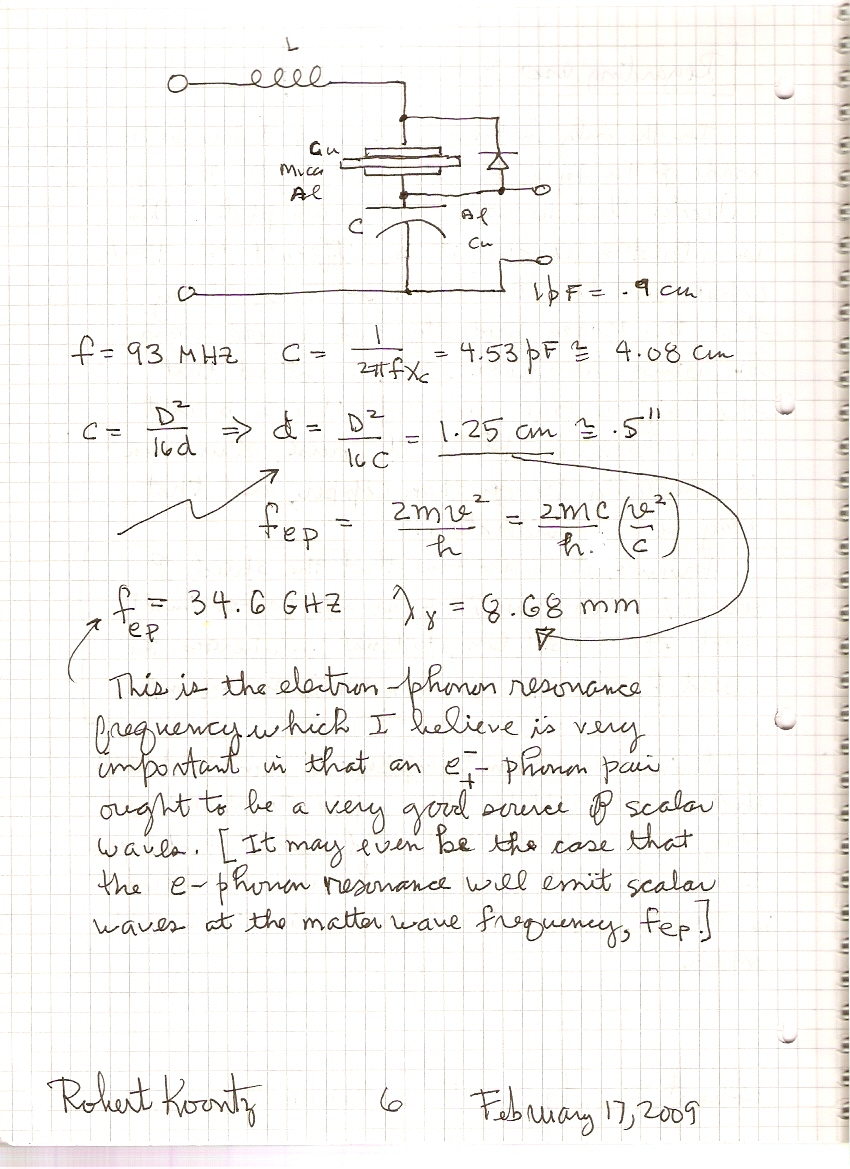 L
Cu
Mica
Al
C
Al
Cu
1pF = .9 cm
f = 93 MHZ C = 1/(2πfXc) = 4.53 pF ≅ 4.08 cm
C = D²/16d ⇒ d = D²/16C = 1.25 cm ≅ .5"
f_ep = 2mv²/h = 2mc/h. (v²/c)
f_ep = 34.6 GHZ λ_γ = 8.68 mm
This is the electron-phonon resonance
frequency which I believe is very
important in that an e∓ - phonon pair
ought to be a very good source of scalar
waves. [It may even be the case that
the e-phonon resonance will emit scalar
waves at the matter wave frequency, f_ep.]
Robert Koontz 6 February 17, 2009